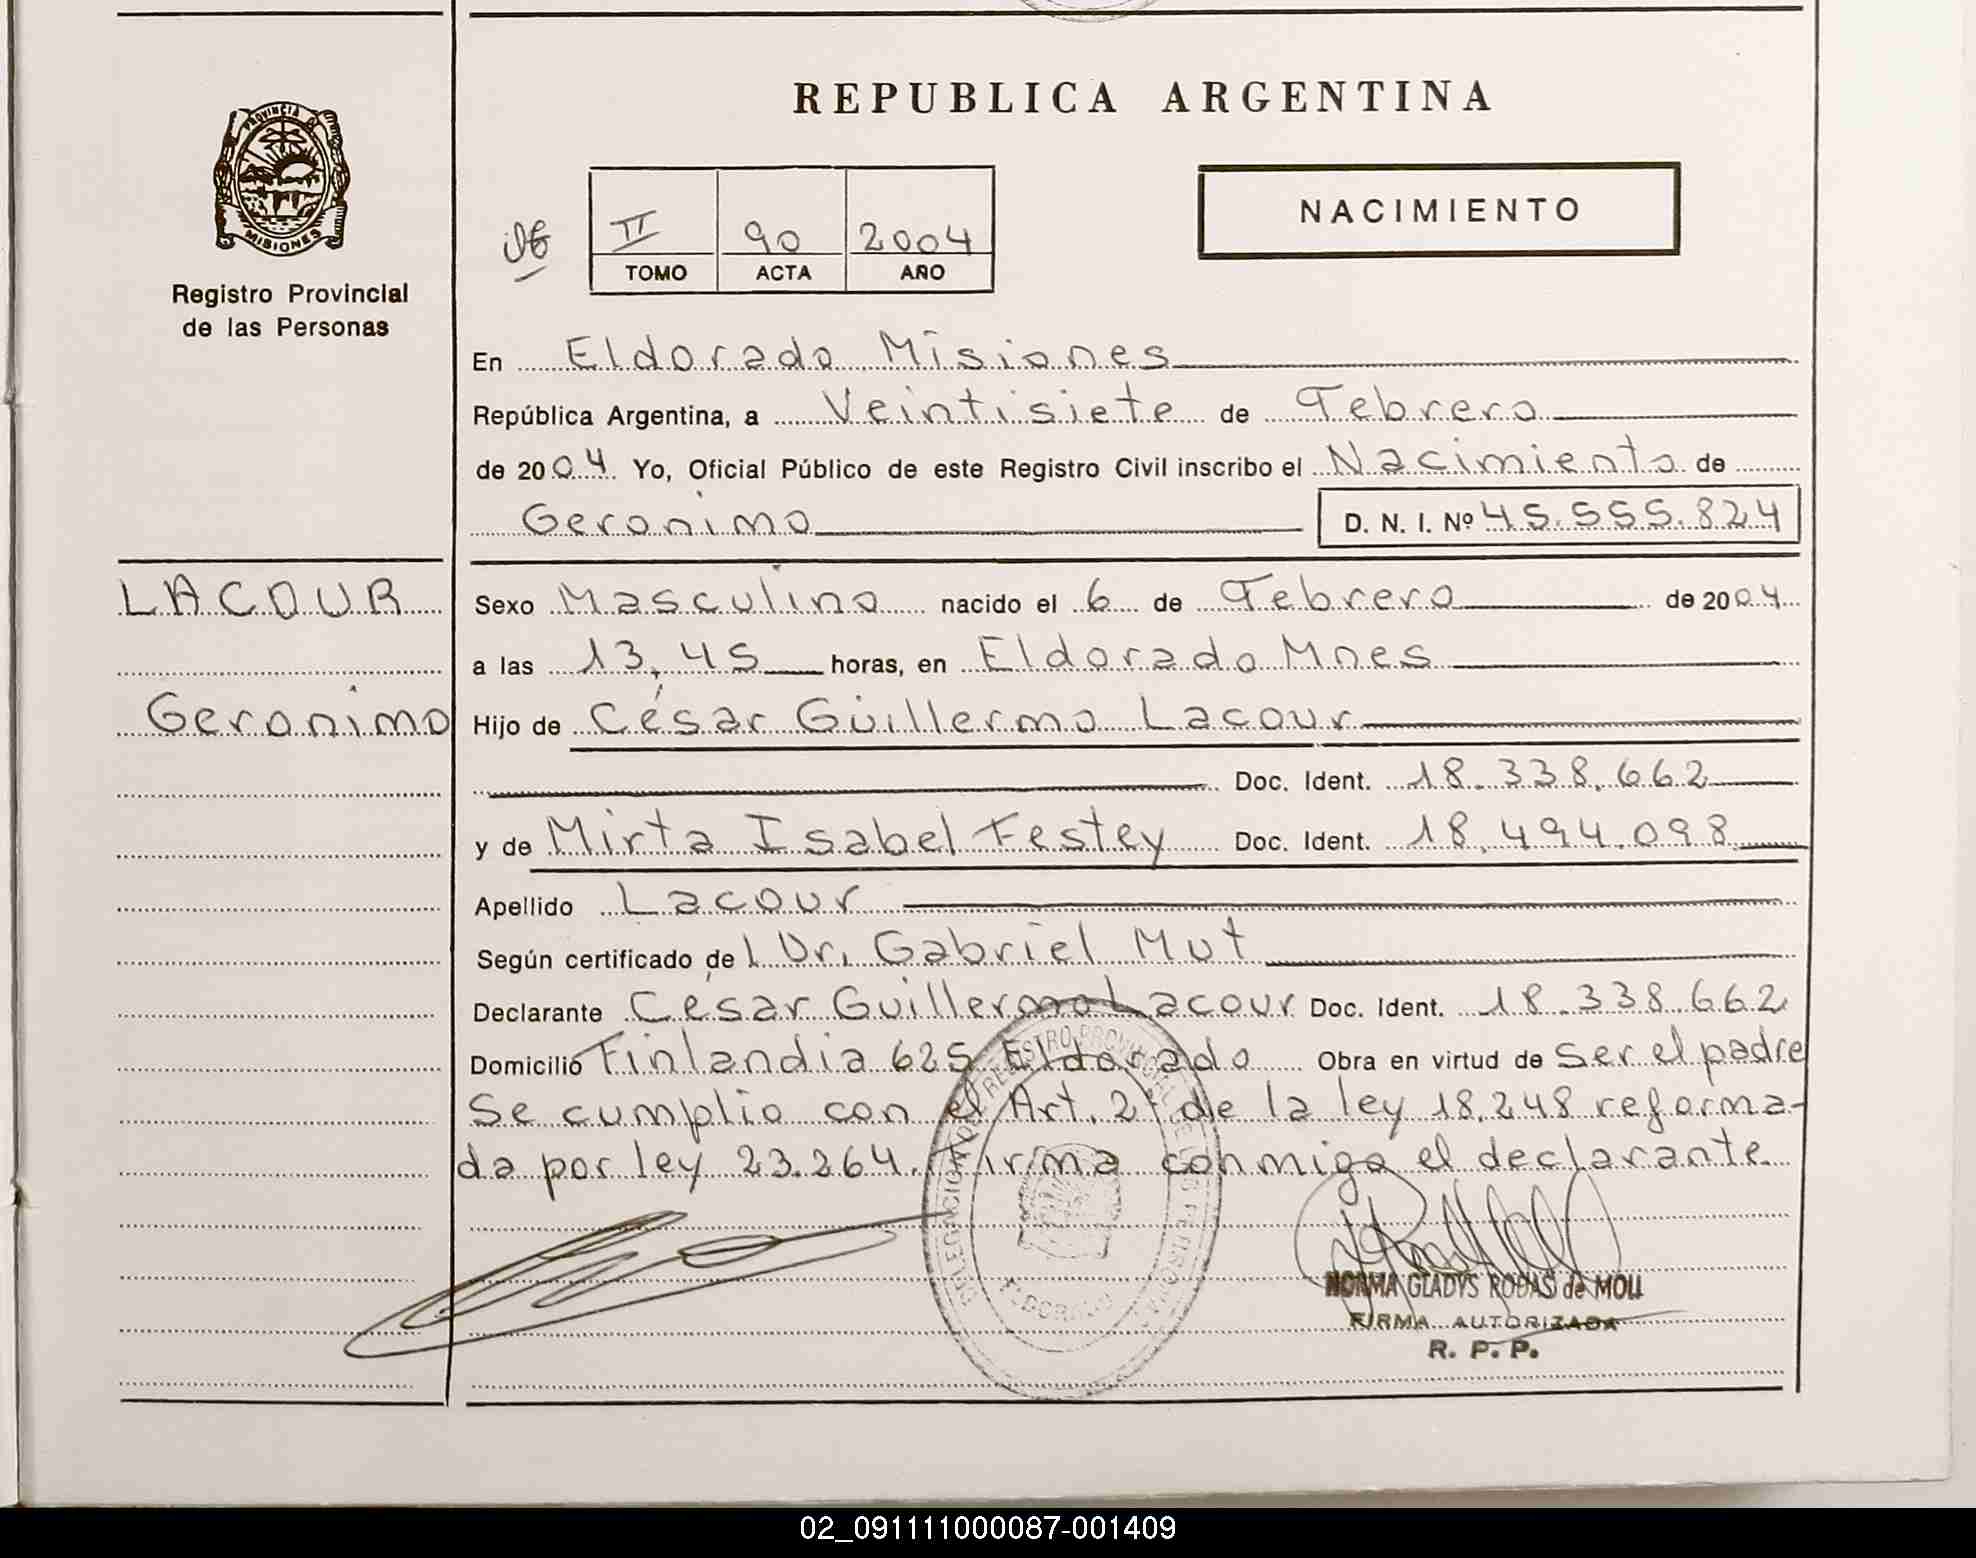 REPUBLICA ARGENTINA
PROVINCIA DE
MISIONES
Registro Provincial
de las Personas
NACIMIENTO
II 90 2004
TOMO ACTA AÑO
En Eldorado Misiones
República Argentina, a Veintisiete de Febrero
de 2004 Yo, Oficial Público de este Registro Civil inscribo el Nacimiento de
Geronimo D. N. I. Nº 45.555.824
LACOUR
Geronimo
Sexo Masculino nacido el 6 de Febrero de 2004
a las 13,45 horas, en Eldorado Mnes
Hijo de César Guillermo Lacour
Doc. Ident. 18.338.662
y de Mirta Isabel Festey Doc. Ident. 18.494.098
Apellido Lacour
Según certificado de l Dr. Gabriel Mut
Declarante César Guillermo Lacour Doc. Ident. 18.338.662
Domicilio Finlandia 625 Eldorado Obra en virtud de ser el padre
Se cumplio con el Art. 2º de la ley 18.248 reforma-
da por ley 23.264. Firma conmigo el declarante
DELEGACION DE REGISTRO PROVINCIAL DE LAS PERSONAS
ELDORADO
NORMA GLADYS RODAS de MOLL
FIRMA AUTORIZADA
R. P. P.
02_091111000087-001409